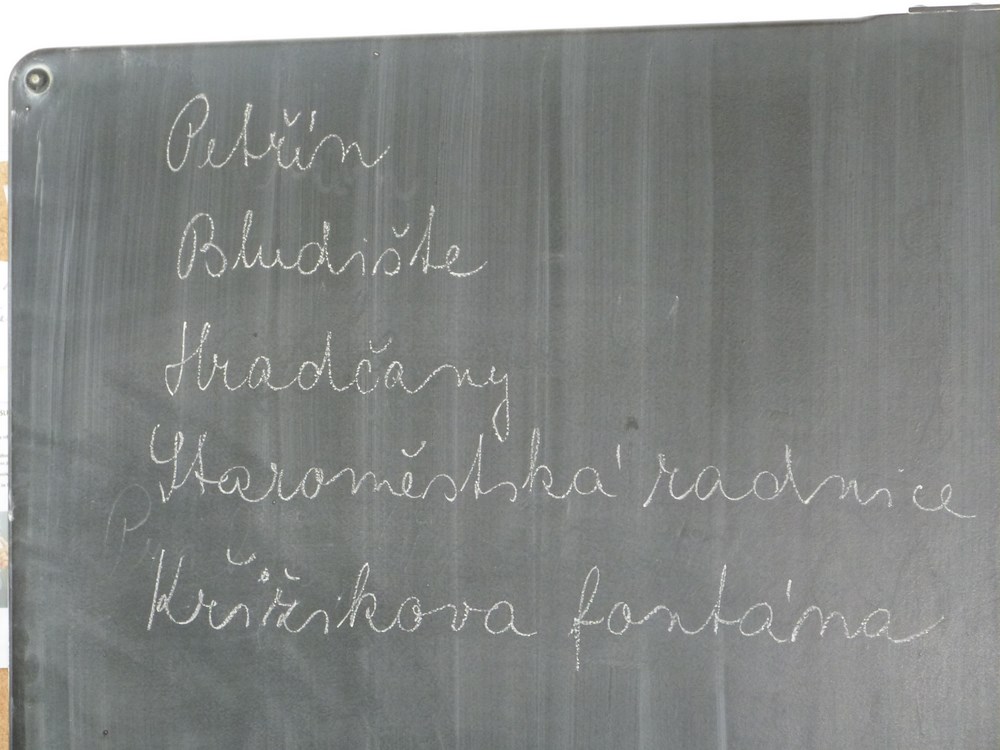 Petřín
Bludiště
Hradčany
Staroměstská radnice
Křižikova fontána